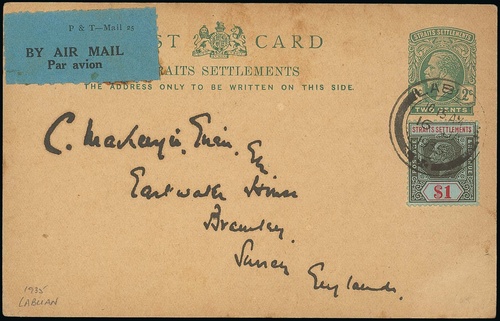 P & T—Mail 25
BY AIR MAIL
Par avion
ST CARD
STRAITS SETTLEMENTS
THE ADDRESS ONLY TO BE WRITTEN ON THIS SIDE.
STRAITS SETTLEMENTS
2c
TWO CENTS
LAB
STRAITS SETTLEMENTS
POSTAGE
REVENUE
$1
C. Mackenzie, Esq
Eastwater House
Bramley
Surrey
England.
1935
LABUAN